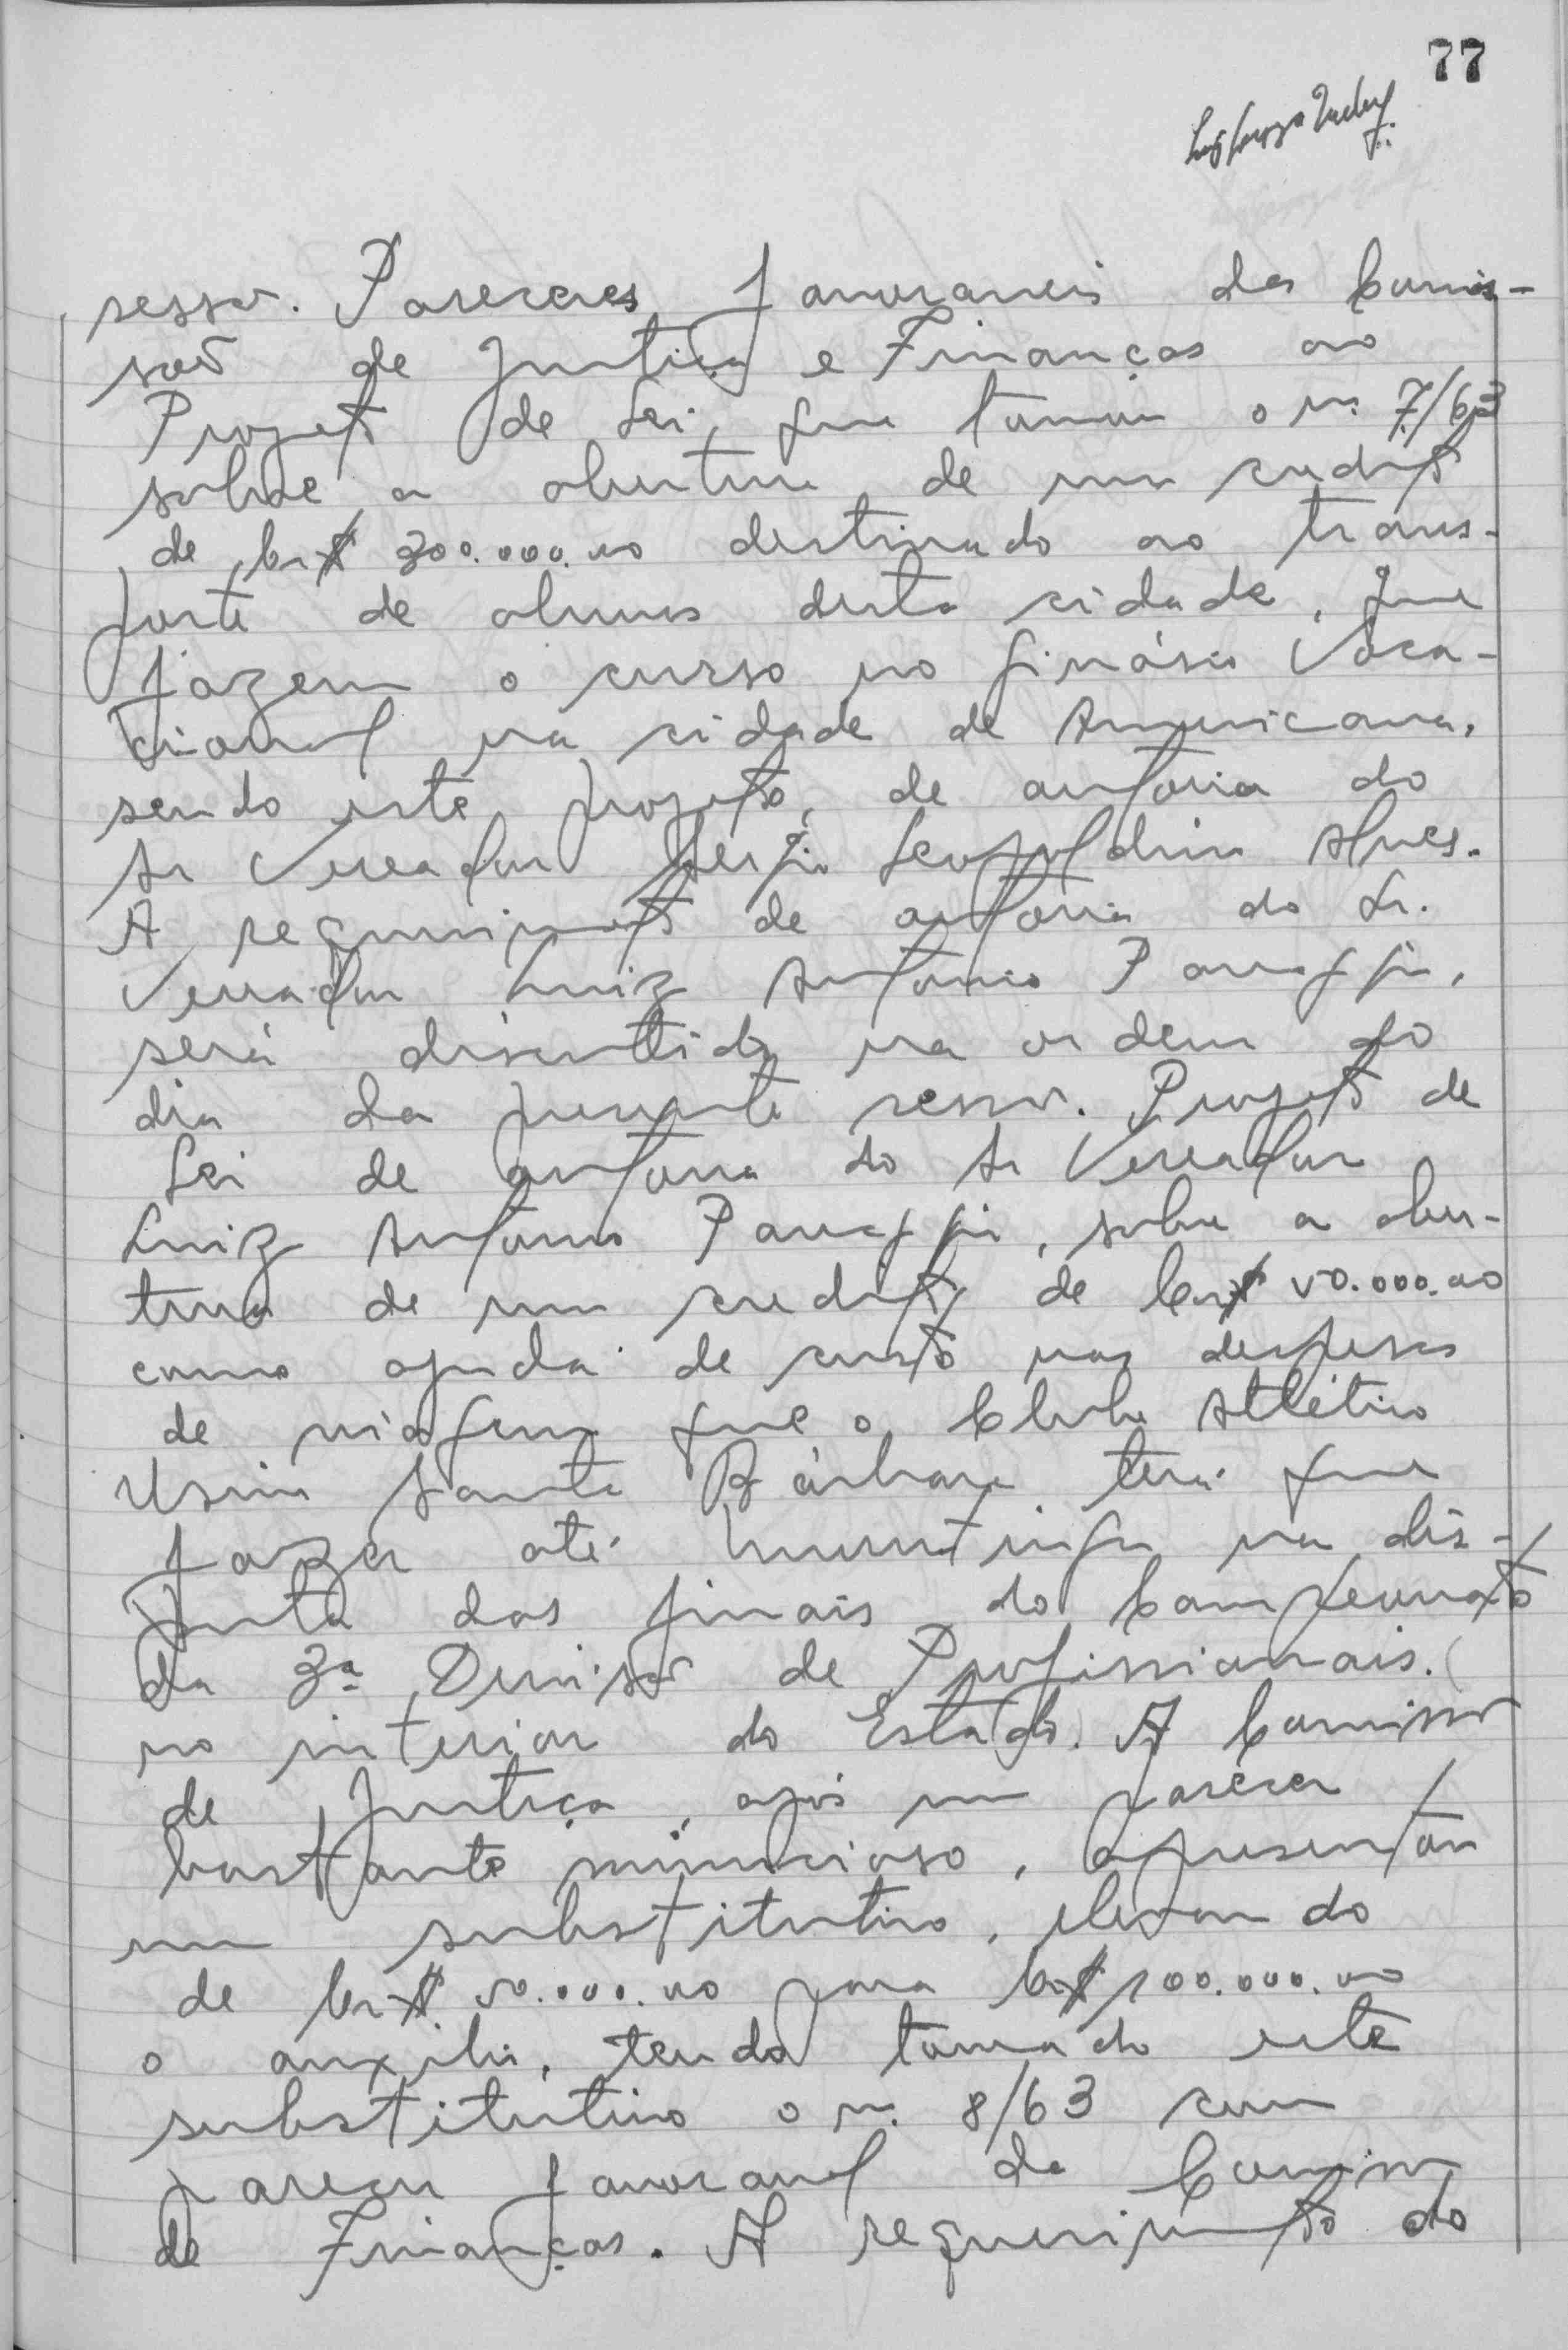 77
sessão. Pareceres favoraveis da Comis-
são de Justiça e Finanças ao
Projeto de Lei, que tomou o n. 7/63
sobre a abertura de um credito
de Cr$ 300.000.00 destinado ao trans-
porte de alunos desta cidade, que
fazem o curso no ginásio Voca-
cional na cidade de Americana,
sendo este projeto, de autoria do
Sr Vereador Sergio Leopoldino Alves.
A requerimento de autoria do Sr.
Vereador Luiz Antonio Panaggio,
será discutido na ordem do
dia da presente sessão. Projeto de
Lei de autoria do Sr Vereador
Luiz Antonio Panaggio, sobre a aber-
tura de um credito de Cr$ 50.000.00
como ajuda de custo nas despesas
de viagem que o Clube Atlético
Usina Santa Bárbara terá que
fazer até na dis-
puta das finais do Campeonato
da 3ª Divisão de Profissionais.
no interior do Estado. A Comissão
de Justiça, após um parecer
bastante minucioso, apresentou
um substitutivo, elevando
de Cr$ 50.000.00 para Cr$ 100.000.00
o auxilio, tendo tomado este
substitutivo o n. 8/63 com
parecer favoravel da Comissão
de Finanças. A requerimento do